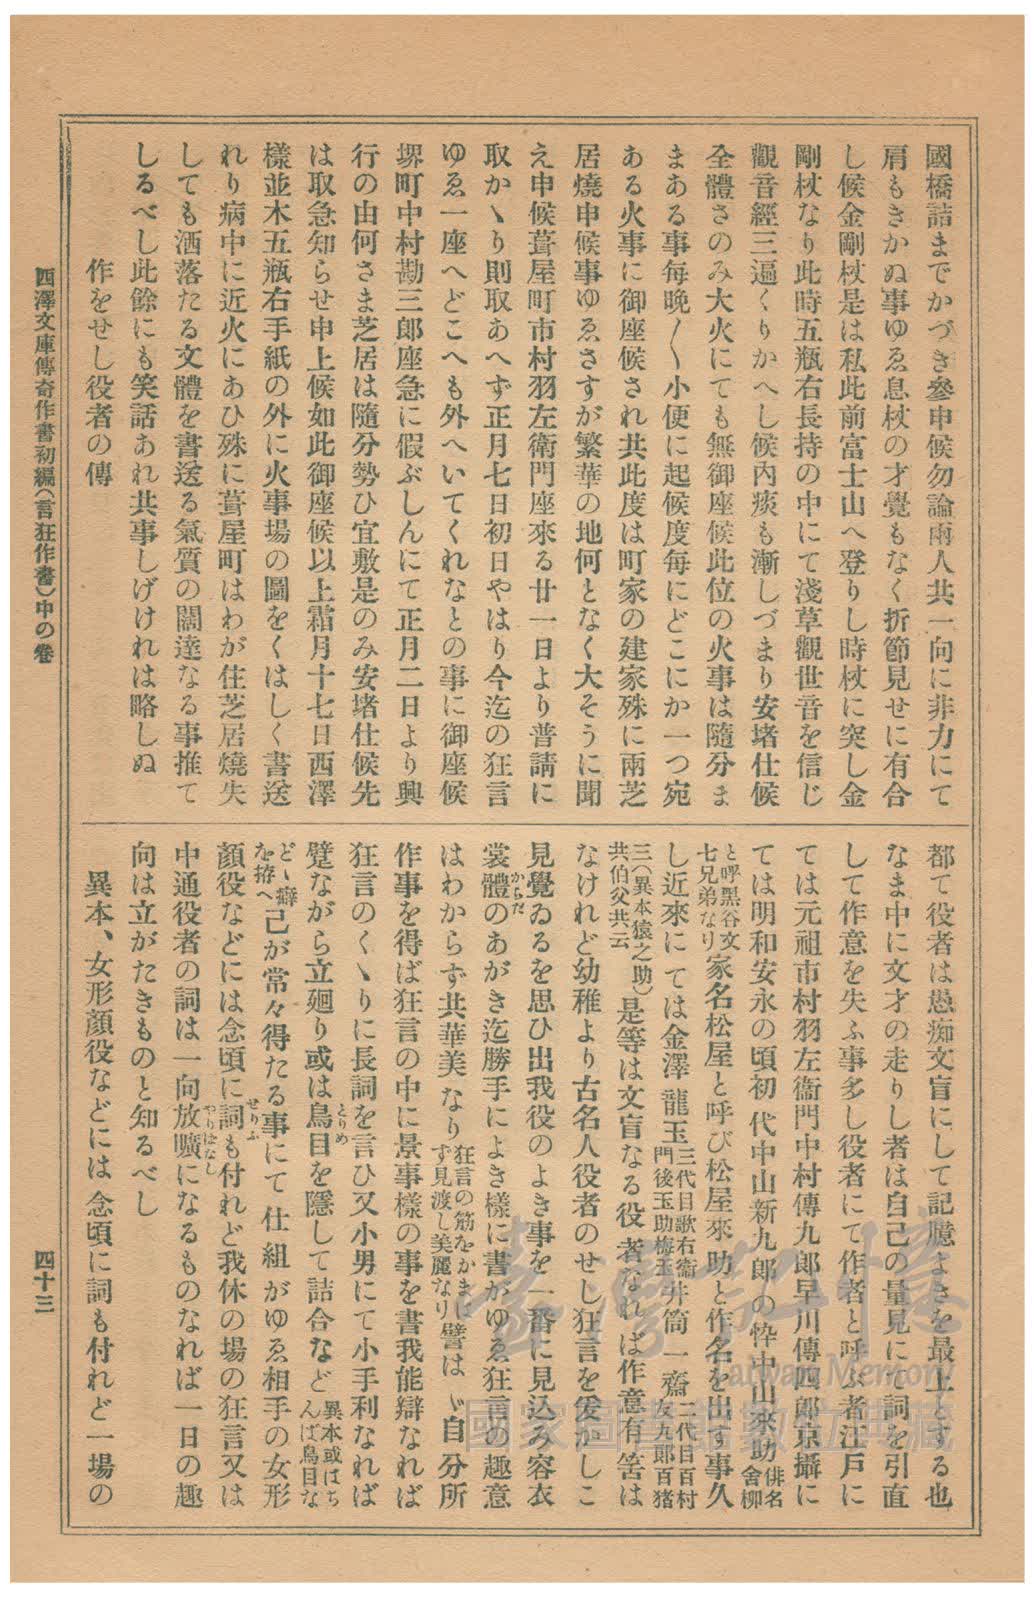 國橋詰までかづき參申候勿論雨人共一向に非力にて
肩もきかぬ事ゆゑ息杖の才覺もなく折節見せに有合
し候金剛杖是は私此前富士山へ登りし時杖に突し金
剛杖なり此時五瓶右長持の中にて淺草觀世音を信じ
觀音經三遍くりかへし候內痰も漸しづまり安堵仕候
全體さのみ大火にても無御座候此位の火事は隨分ま
まある事每晩〳〵小便に起候度每にどこにか一つ宛
ある火事に御座候され共此度は町家の建家殊に兩芝
居燒申候事ゆゑさすが繁華の地何となく大そうに聞
え申候葺屋町市村羽左衞門座來る廿一日より普請に
取かゝり則取あへず正月七日初日やはり今迄の狂言
ゆゑ一座へどこへも外へいてくれなとの事に御座候
堺町中村勘三郎座急に假ぶしんにて正月二日より興
行の由何さま芝居は隨分勢ひ宜敷是のみ安堵仕候先
は取急知らせ申上候如此御座候以上霜月十七日西澤
樣並木五瓶右手紙の外に火事場の圖をくはしく書送
れり病中に近火にあひ殊に葺屋町はわが住芝居燒失
しても洒落たる文體を書送る氣質の闊達なる事推て
しるべし此餘にも笑話あれ共事しげけれは略しぬ
作をせし役者の傳
都て役者は愚痴文盲にして記臆よきを最上とする也
なま中に文才の走りし者は自己の量見にて詞を引直
して作意を失ふ事多し役者にて作者と呼ぶ者江戶に
ては元祖市村羽左衞門中村傳九郎早川傳四郎京攝に
ては明和安永の頃初代中山新九郎の忰中山來助俳名舍柳
と呼黑谷文七兄弟なり家名松屋と呼び松屋來助と作名を出す事久
し近來にては金澤龍玉三代目歌右衞門後玉助梅玉井筒一齋二代目百村友九郎百猪
三(異本猿之助)共伯父共云是等は文盲なる役者なれば作意有筈は
なけれど幼稚より古名人役者のせし狂言を愛がしこ
見覺ゐるを思ひ出我役のよき事を一番に見込み容衣
裳體のあがき迄勝手によき樣に書がゆゑ狂言の趣意
はわからず共華美なり狂言の筋をかまはず見渡し美麗なり譬は〲自分所
作事を得ば狂言の中に景事樣の事を書我能辯なれば
狂言のくゝりに長詞を言ひ又小男にて小手利なれば
躄ながら立廻り或は鳥目を隱して詰合など異本或はちんば鳥目な
どゝ癖を拵へ己が常々得たる事にて仕組がゆゑ相手の女形
顏役などには念頃に詞も付れど我休の場の狂言又は
中通役者の詞は一向放曠になるものなれば一日の趣
向は立がたきものと知るべし
異本、女形顏役などには念頃に詞も付れど一場の
西澤文庫傳奇作書初編(言狂作書)中の卷
四十三
臺灣記憶
Taiwan Memory
國家圖書館數位典藏